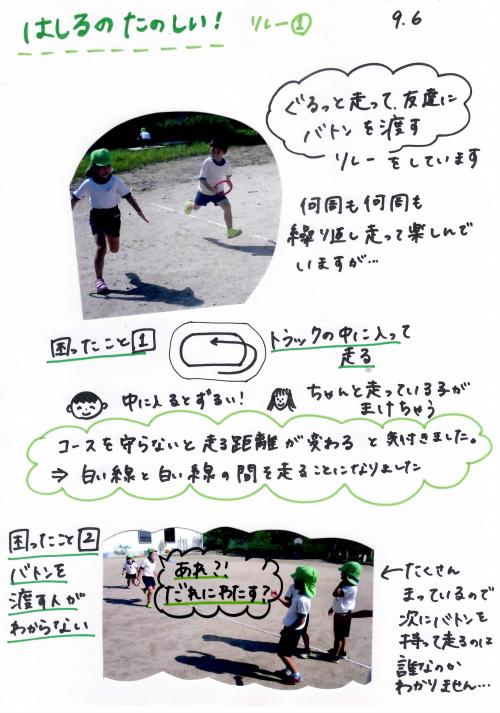 はしるの たのしい! リレー①
9.6
ぐるっと走って、友達に
バトンを渡す
リレー をしています
何周も何周も
繰り返し走って楽しんで
いますが…
困ったこと1
トラックの中に入って
走る
中に入るとずるい!
ちゃんと走っている子が
まけちゃう
コースを守らないと走る距離が変わる と気付きました。
⇒ 白い線と白い線の間を走ることになりました
困ったこと2
バトンを
渡す人が
わからない
あれ?!
だれにわたす?
←たくさん
まっているので
次にバトンを
持って走るのは
誰なのか
わかりません…